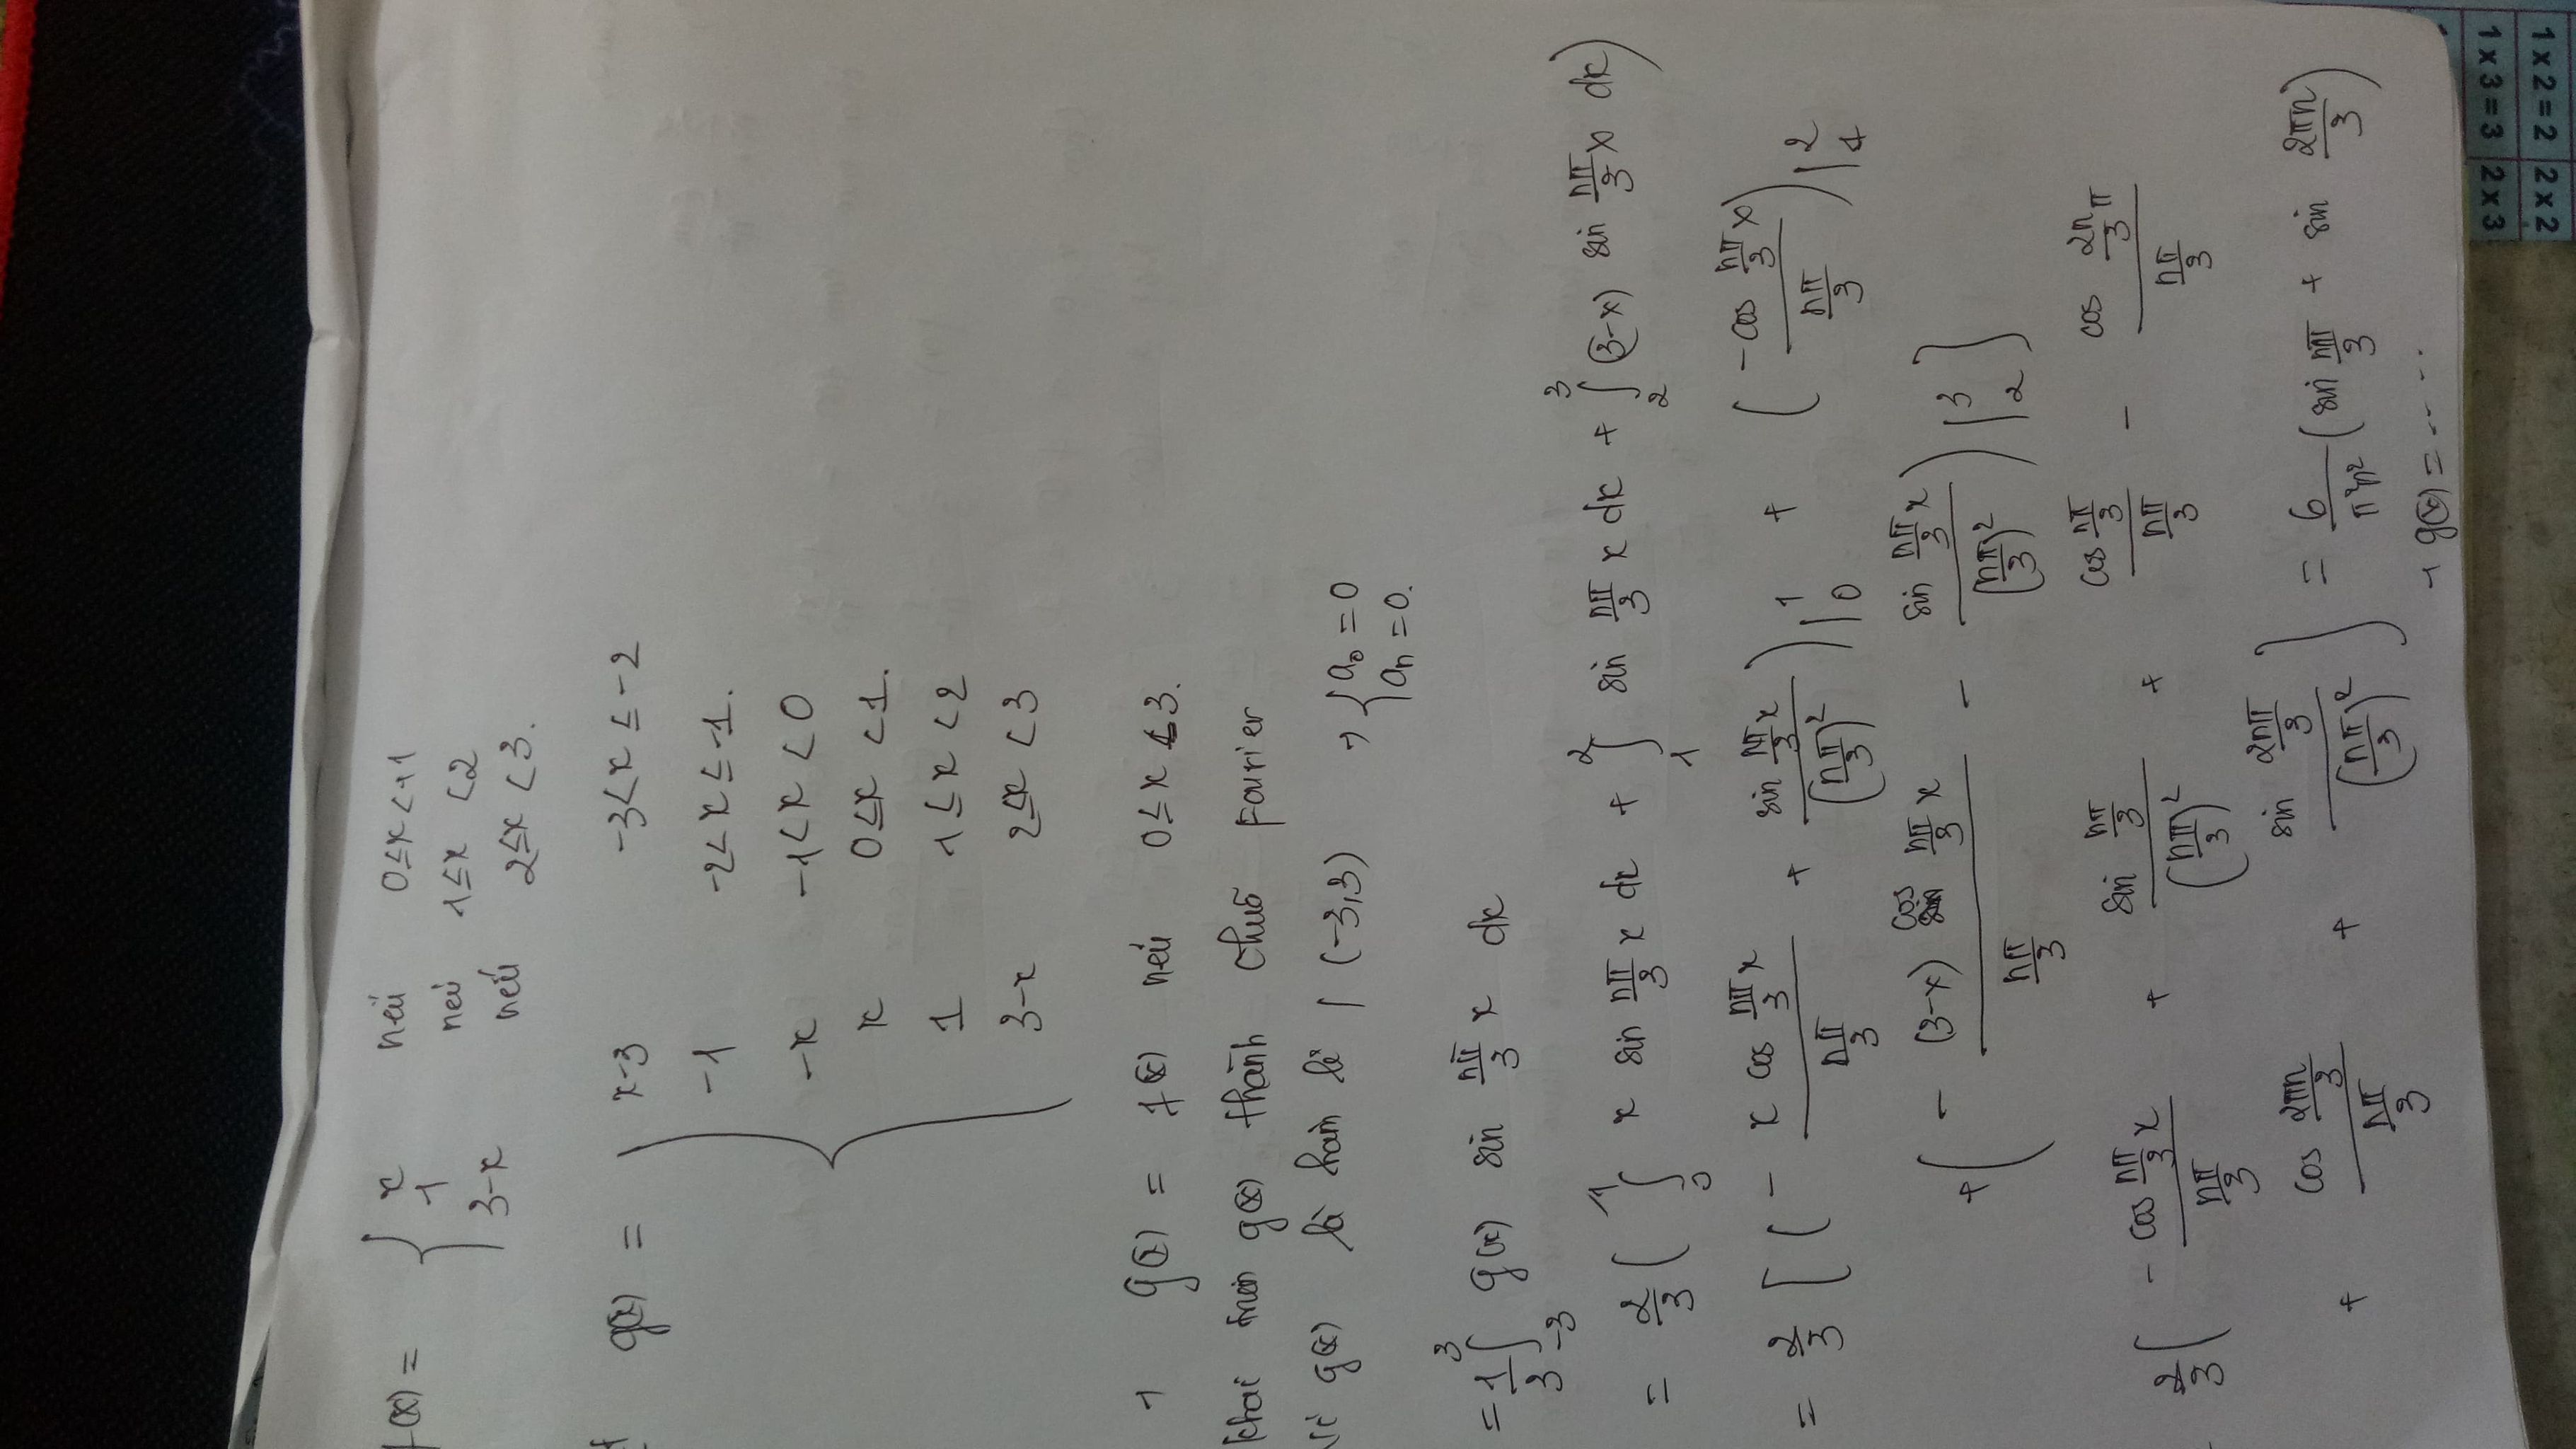 f(x) = { x nếu 0 ≤ x < +1
1 nếu 1 ≤ x < 2
3-x nếu 2 ≤ x < 3.
g(x) = { x-3 -3 < x ≤ -2
-1 -2 < x ≤ -1.
-x -1 < x < 0
x 0 ≤ x < 1.
1 1 ≤ x < 2
3-x 2 ≤ x < 3
→ g(x) = f(x) nếu 0 ≤ x < 3.
khai triển g(x) thành chuỗi Fourier
Vì g(x) là hàm lẻ / (-3,3) → { a₀ = 0
aₙ = 0.
= 1/3 ∫₋₃³ g(x) sin nπ/3 x dx
= 2/3 ( ∫₀¹ x sin nπ/3 x dx + ∫₁² sin nπ/3 x dx + ∫₂³ (3-x) sin nπ/3 x dx )
= 2/3 [ ( - x cos nπ/3 x / nπ/3 + sin nπ/3 x / (nπ/3)² ) |₀¹ + ( - cos nπ/3 x / nπ/3 ) |₁²
+ ( - (3-x) cos nπ/3 x / nπ/3 - sin nπ/3 x / (nπ/3)² ) |₂³ ]
2/3 [ - cos nπ/3 x / nπ/3 + sin nπ/3 / (nπ/3)² + cos nπ/3 / nπ/3 - cos 2n/3 π / nπ/3
+ cos 2πn/3 / nπ/3 + sin 2nπ/3 / (nπ/3)² ] = 6/π²n² ( sin nπ/3 + sin 2πn/3 )
→ g(x) = .....
1 x 3 = 3 2 x 3
1 x 2 = 2 2 x 2